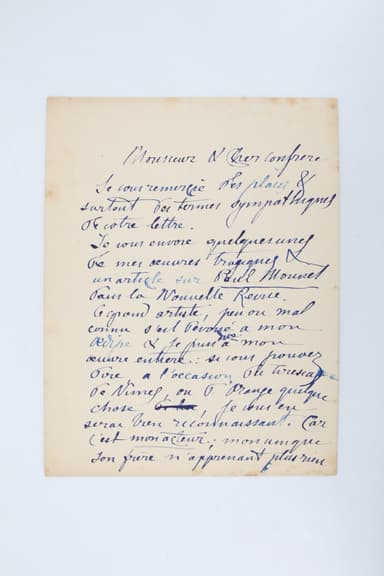 Monsieur & Cher confrère
Je vous remercie des places &
surtout des termes sympathiques
de votre lettre.
Je vous envoie quelques unes
de mes œuvres tragiques &
un article sur Paul Mounet
dans la Nouvelle Revue.
Ce grand artiste, peu ou mal
connu s'est dévoué à mon
œuvre & je puis dire à mon
œuvre entière : si vous pouvez
dire à l'occasion du
de Nîmes, ou d'Orange quelque
chose, je vous en
serai bien reconnaissant. Car
c'est mon acteur; mon unique
son frère n'apprenant plus rien